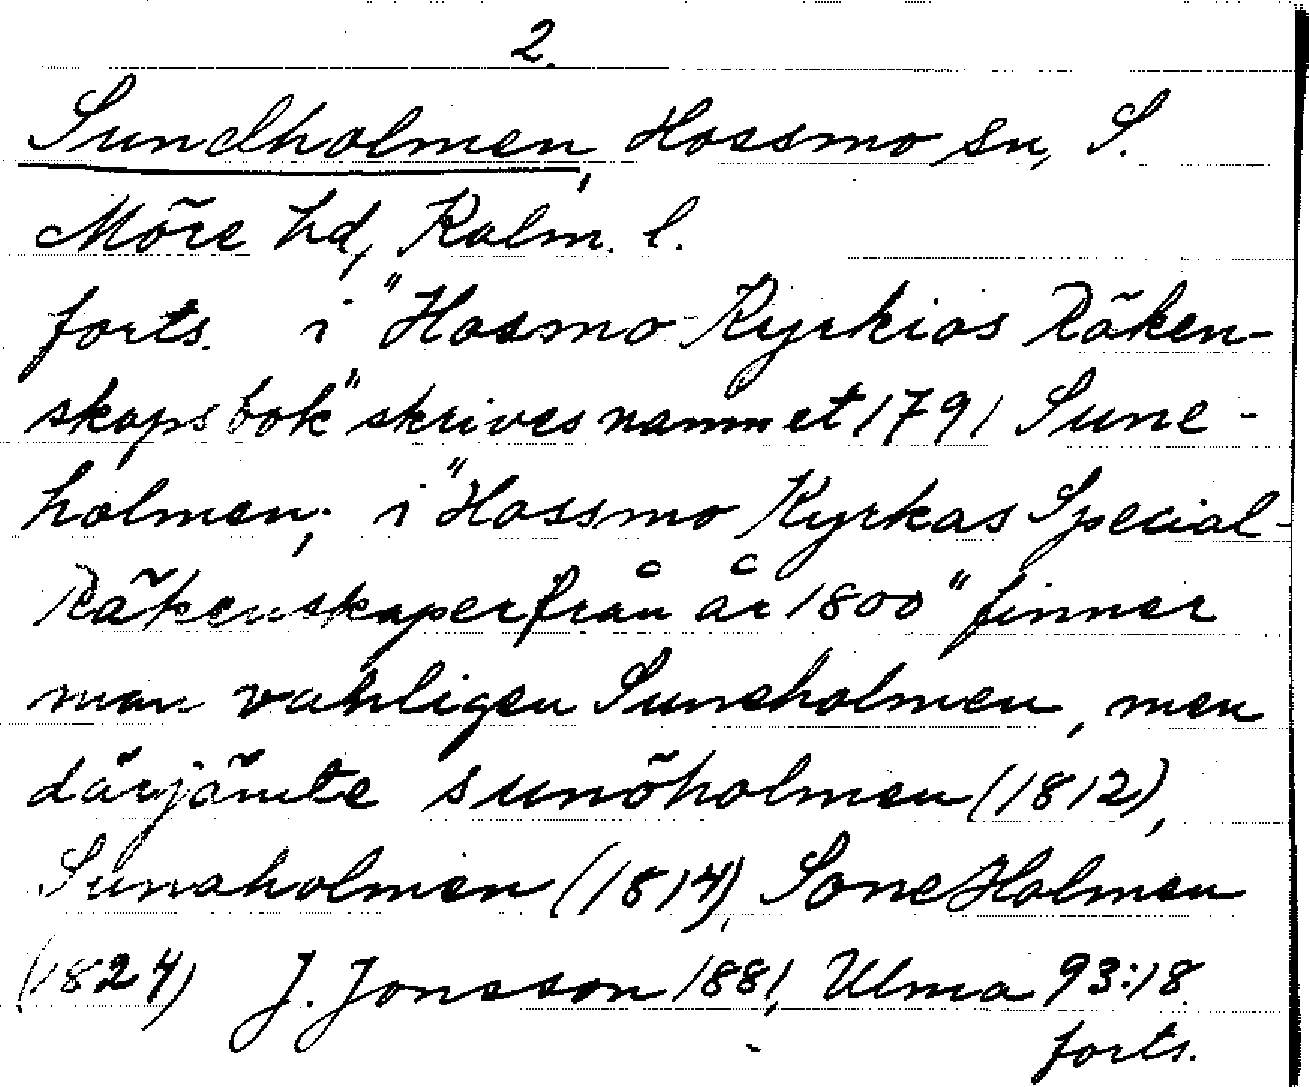 2.
Sundholmen, Hossmo sn, S.
Möre hd, Kalm. l.
forts. i "Hosmo Kyrkios Räken-
skaps bok" skrives namnet 1791 Sune-
holmen; i "Hossmo Kyrkas Special-
Räkenskaper från år 1800" finner
man vanligen Suneholmen, men
därjämte sunöholmen (1812),
Sunaholmen (1814), Sone Holmen
(1824) J. Jonsson 1881, Ulma 93:18.
forts.